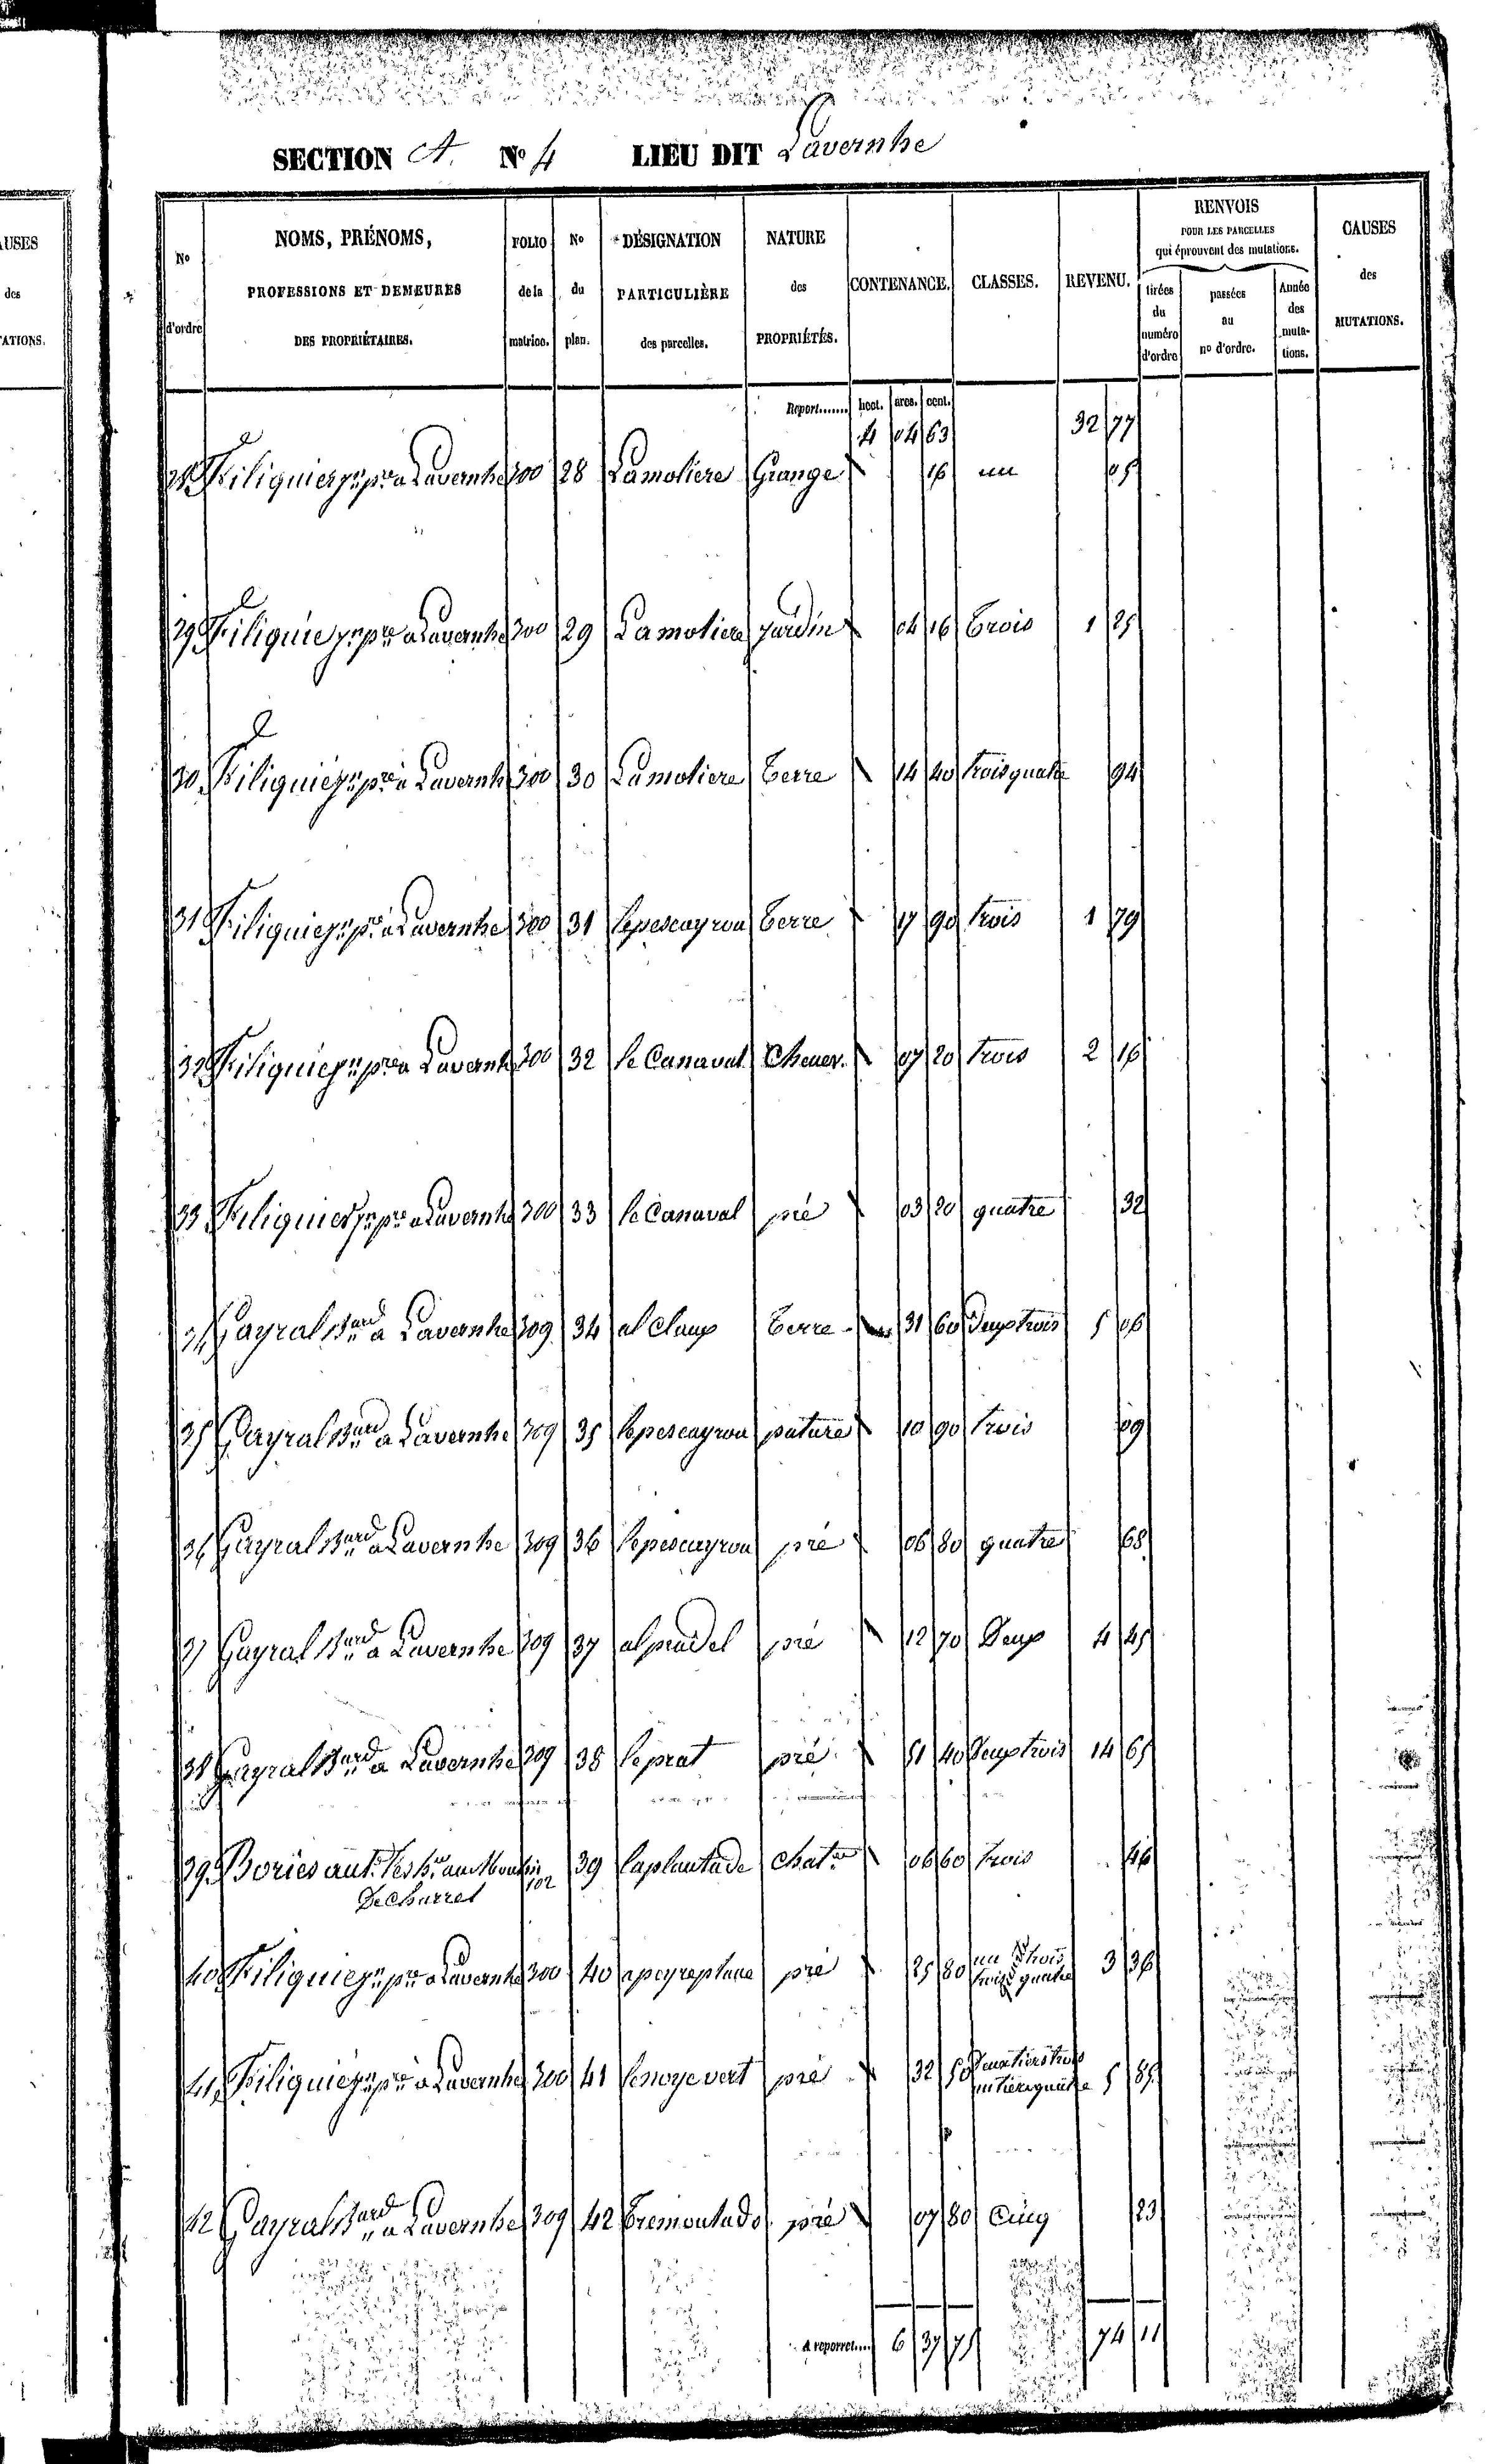 SECTION A. No 4 LIEU DIT Lavernhe
AUSES
des
TATIONS.
No d'ordre
NOMS, PRÉNOMS,
PROFESSIONS ET DEMEURES
DES PROPRIÉTAIRES.
FOLIO de la matrice.
No du plan.
DÉSIGNATION
PARTICULIÈRE
des parcelles.
NATURE
des
PROPRIÉTÉS.
CONTENANCE.
CLASSES.
REVENU.
RENVOIS
POUR LES PARCELLES
qui éprouvent des mutations.
tirées du numéro d'ordre
passées au no d'ordre.
Année des mutations.
CAUSES
des
MUTATIONS.
Report....... hect. ares. cent.
4 04 63 32 77
28 Filiquier jn pre a Lavernhe 300 28 Lamoliere Grange 16 un 05
29 Filiquier jn pre a Lavernhe 300 29 Lamoliere jardin 04 16 trois 1 25
30 Filiquier jn pre a Lavernhe 300 30 Lamoliere terre 14 40 trois quatre 94
31 Filiquier jn pre a Lavernhe 300 31 lepescayrou terre 17 90 trois 1 79
32 Filiquier jn pre a Lavernhe 300 32 le Canaval Chener. 07 20 trois 2 16
33 Filiquier jn pre a Lavernhe 300 33 le Canaval pré 03 20 quatre 32
34 Gayral Bnard a Lavernhe 309 34 al Claux terre 31 60 Deux trois 5 06
35 Gayral Bnard a Lavernhe 309 35 lepescayrou pature 10 90 trois 09
36 Gayral Bnard a Lavernhe 309 36 lepescayrou pré 06 80 quatre 68
37 Gayral Bnard a Lavernhe 309 37 alpradel pré 12 70 Deux 4 45
38 Gayral Bnard a Lavernhe 309 38 leprat pré 51 40 Deux trois 14 65
39 Bories ant. au Moulin 102 39 laplantade chatre 06 60 trois 46
De Charret
40 Filiquier jn pre a Lavernhe 300 40 apeyreplane pré 25 80 un trois
trois quatre 3 36
41 Filiquier jn pre a Lavernhe 300 41 lenoyevert pré 32 50 Deux tiers trois
un tiers quatre 5 85
42 Gayral Bnard a Lavernhe 309 42 tremontado pré 07 80 Cinq 23
A reporter.... 6 37 75 74 11